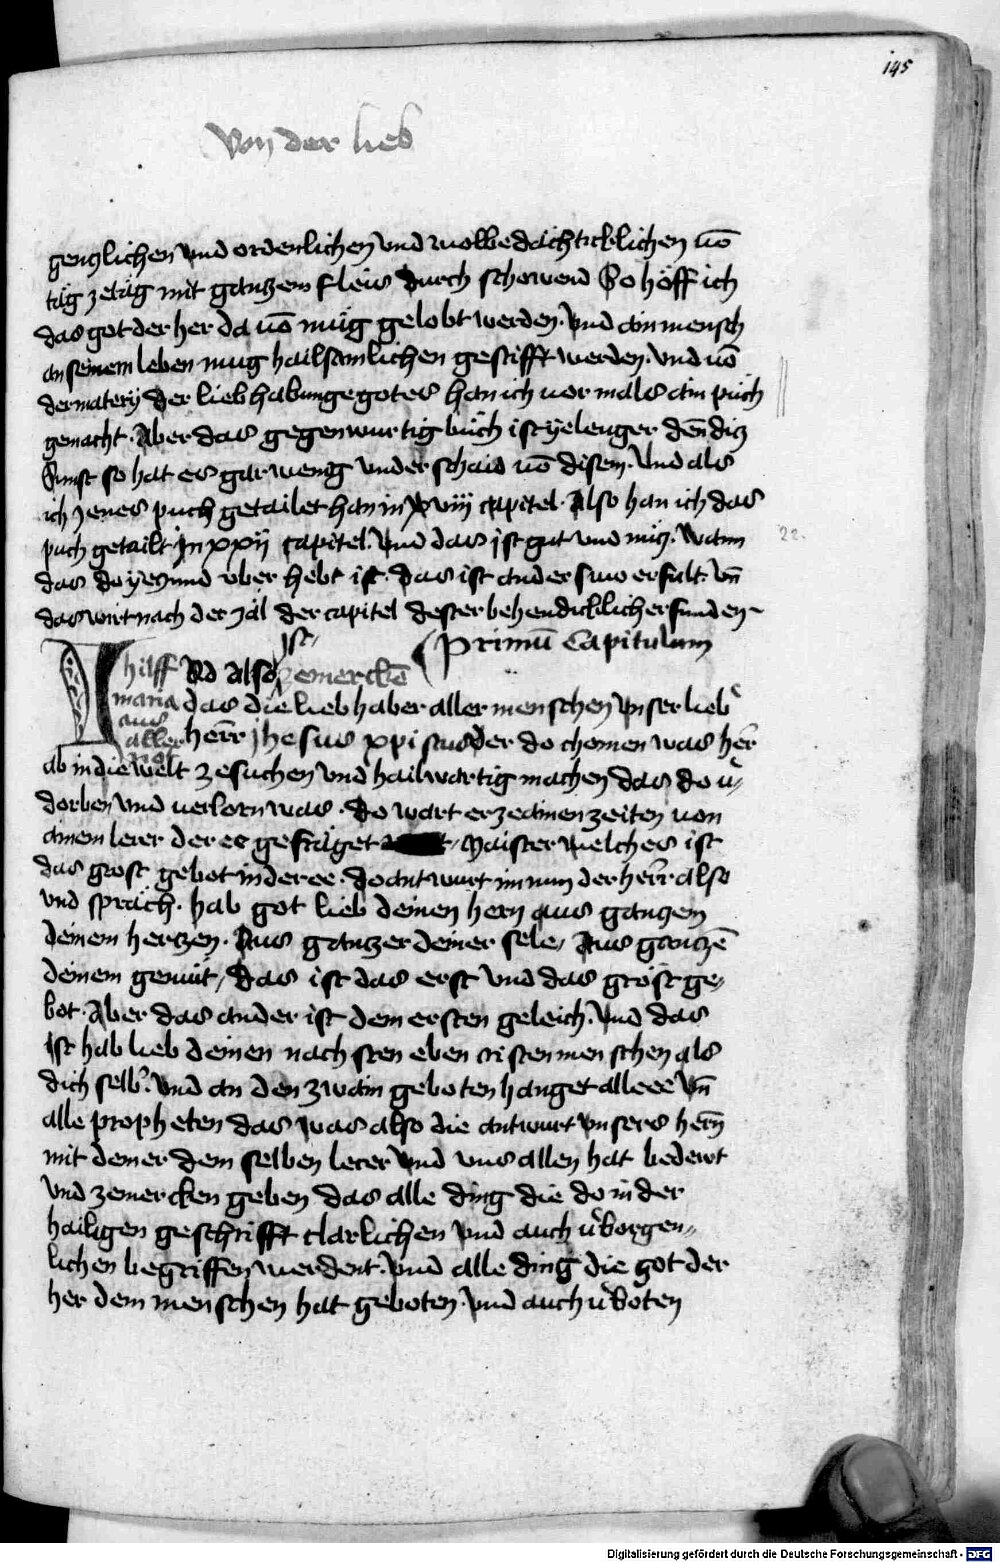 145
Von der lieb
genczlichen vnd ordenlichen vnd wolbedachticklichen uō
tag zetag mit ganczem fleis durch schowend So hoff ich
das got der her da uō mug gelobt werden. vnd ain mensch
an seinem leben mug hailsamlichen gestifft werden. vnd uō
der matery der liebhabunge gotes han ich uormals ain puch
gemacht. Aber das gegenwurtig buch ist lenger den diz
Sunst so hat es gar wenig vnderschaid uō disem. Vnd als
ich jenes puch getailet han in xviij capitel. Also han ich das
puch getailt Jn xxij capitel. vnd das ist gut vnd nucz. wann
22.
das do yeczund vber hebt ist. das ist anderswo erfult. vn̄
das wirt nach der zal der capitel dester behendicklicher funden
Primū Capitulum
ist
hilff Nd also zemerckē
maria das die liebhaber aller menschen vnser lieb
aus
aller herr jhesus xpistus der do chomen was her
not
ab in die welt zesuchen vnd hailwartig machen das do u̕
dorben vnd uerlorn was. do wart er zeainen zeiten uon
ainem lerer der ee gefraget Maister welches ist
das grost gebot in der ee. do antwurt im nun der herr also
vnd sprach. hab got lieb deinen hern aus ganczem
deinem herczen. Aus ganczer deiner sele, Aus ganczē
deinem gemut, Das ist das erst vnd das grost ge,
bot. Aber das ander ist dem ersten geleich. vnd das
ist hab lieb deinen nachsten eben cristenmenschen als
dich selb. vnd an den zwain geboten hanget alle ee vn̄
alle propheten das was also die antwurt vnsers hern̄
mit deiner dem selben lerer vnd vns allen hat bedewt
vnd zemercken geben das alle ding die do in der
hailigen geschrifft clarlichen vnd auch u̕borgen,,
lichen begriffen werdent. vnd alle ding die got der
her dem menschen hat geboten. vnd auch u̕boten
Digitalisierung gefördert durch die Deutsche Forschungsgemeinschaft - DFG